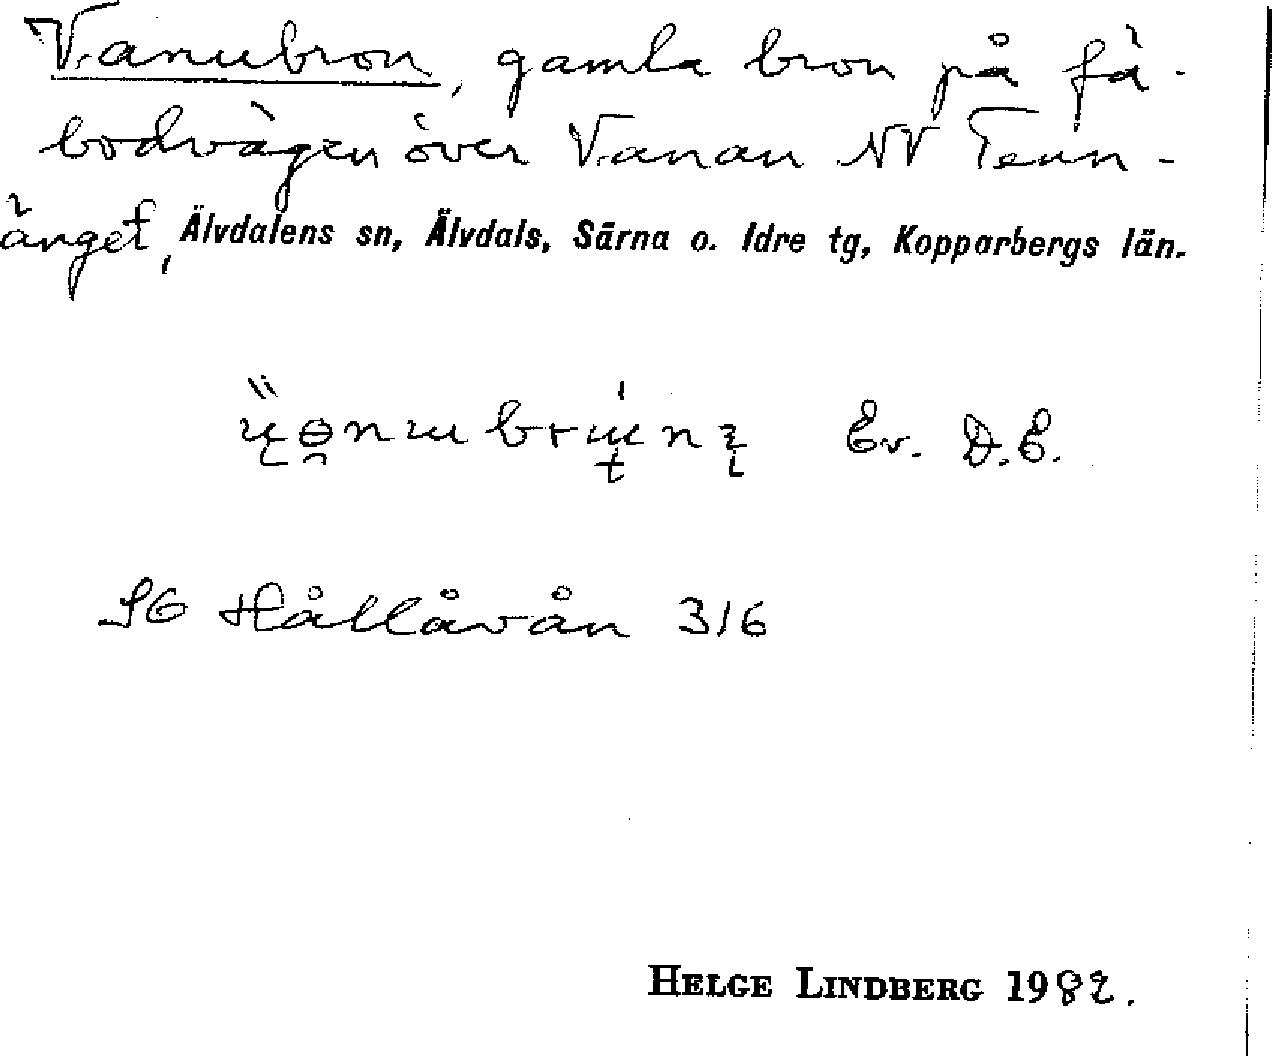 Vanubron, gamla bron på fä-
bodvägen över Vanan NV Tenn-
änget, Älvdalens sn, Älvdals, Särna o. Idre tg, Kopparbergs län.
Ev. D.E.
SG Hållåvån 316
HELGE LINDBERG 1982.